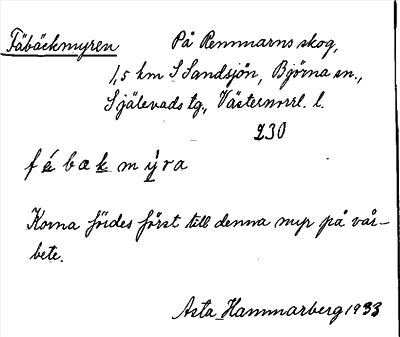 Fäbäckmyren På Remmarns skog,
1,5 km S Sandsjön, Björna sn.,
Själevads tg., Västernorrl. l.
230
fébakmýra
Korna fördes först till denna myr på vår-
bete.
Asta Hammarberg 1933